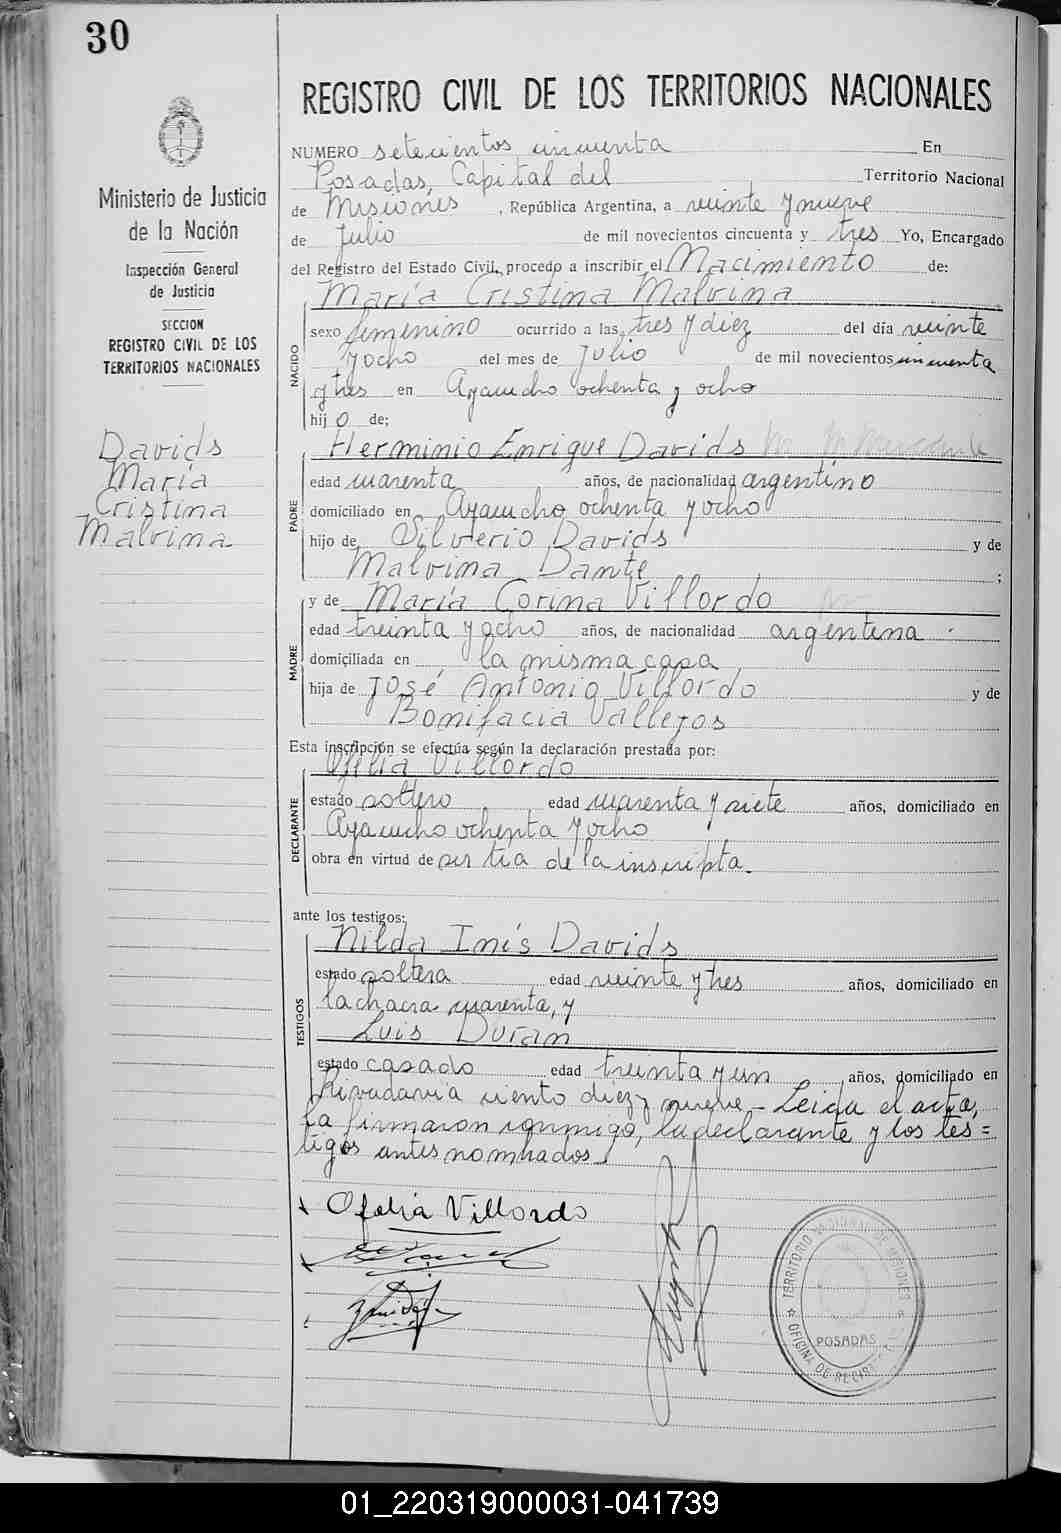 30
Ministerio de Justicia
de la Nación
Inspección General
de Justicia
SECCION
REGISTRO CIVIL DE LOS
TERRITORIOS NACIONALES
Davids
María
Cristina
Malvina
REGISTRO CIVIL DE LOS TERRITORIOS NACIONALES
NUMERO setecientos cincuenta En
Posadas, Capital del Territorio Nacional
de Misiones, República Argentina, a veinte y nueve
de Julio de mil novecientos cincuenta y tres Yo, Encargado
del Registro del Estado Civil, procedo a inscribir el Nacimiento de:
María Cristina Malvina
NACIDO
sexo femenino ocurrido a las tres y diez del día veinte
y ocho del mes de Julio de mil novecientos cincuenta
y tres en Ayacucho ochenta y ocho
hij o de;
Herminio Enrique Davids
PADRE
edad cuarenta años, de nacionalidad argentino
domiciliado en Ayacucho ochenta y ocho
hijo de Silverio Davids y de
Malvina Dante ;
y de María Corina Villordo
MADRE
edad treinta y ocho años, de nacionalidad argentina
domiciliada en la misma casa
hija de José Antonio Villordo y de
Bonifacia Vallejos
Esta inscripción se efectúa según la declaración prestada por:
Ofelia Villordo
DECLARANTE
estado soltero edad cuarenta y siete años, domiciliado en
Ayacucho ochenta y ocho
obra en virtud de ser tia de la inscripta.
ante los testigos:
Nilda Inés Davids
TESTIGOS
estado soltera edad veinte y tres años, domiciliado en
la chacra cuarenta, y
Luis Duran
estado casado edad treinta y un años, domiciliado en
Rivadavia ciento diez y nueve - Leida el acta,
la firmaron conmigo, la declarante y los tes=
tigos antes nombrados
Ofelia Villordo
TERRITORIO NACIONAL DE MISIONES
POSADAS
01_220319000031-041739